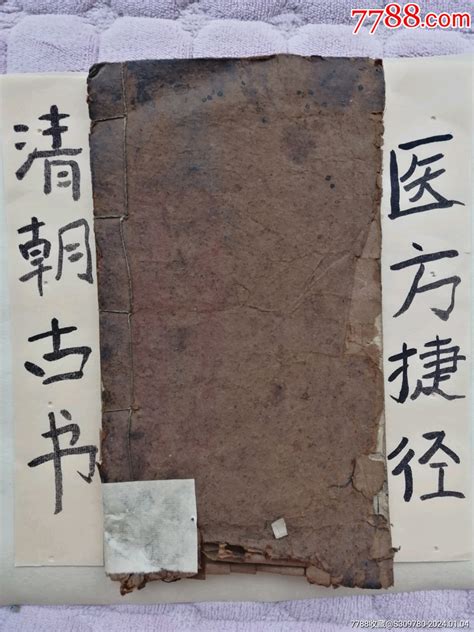 7788.com
清朝古书
医方捷径
7788收藏@S309780-2024.01.04